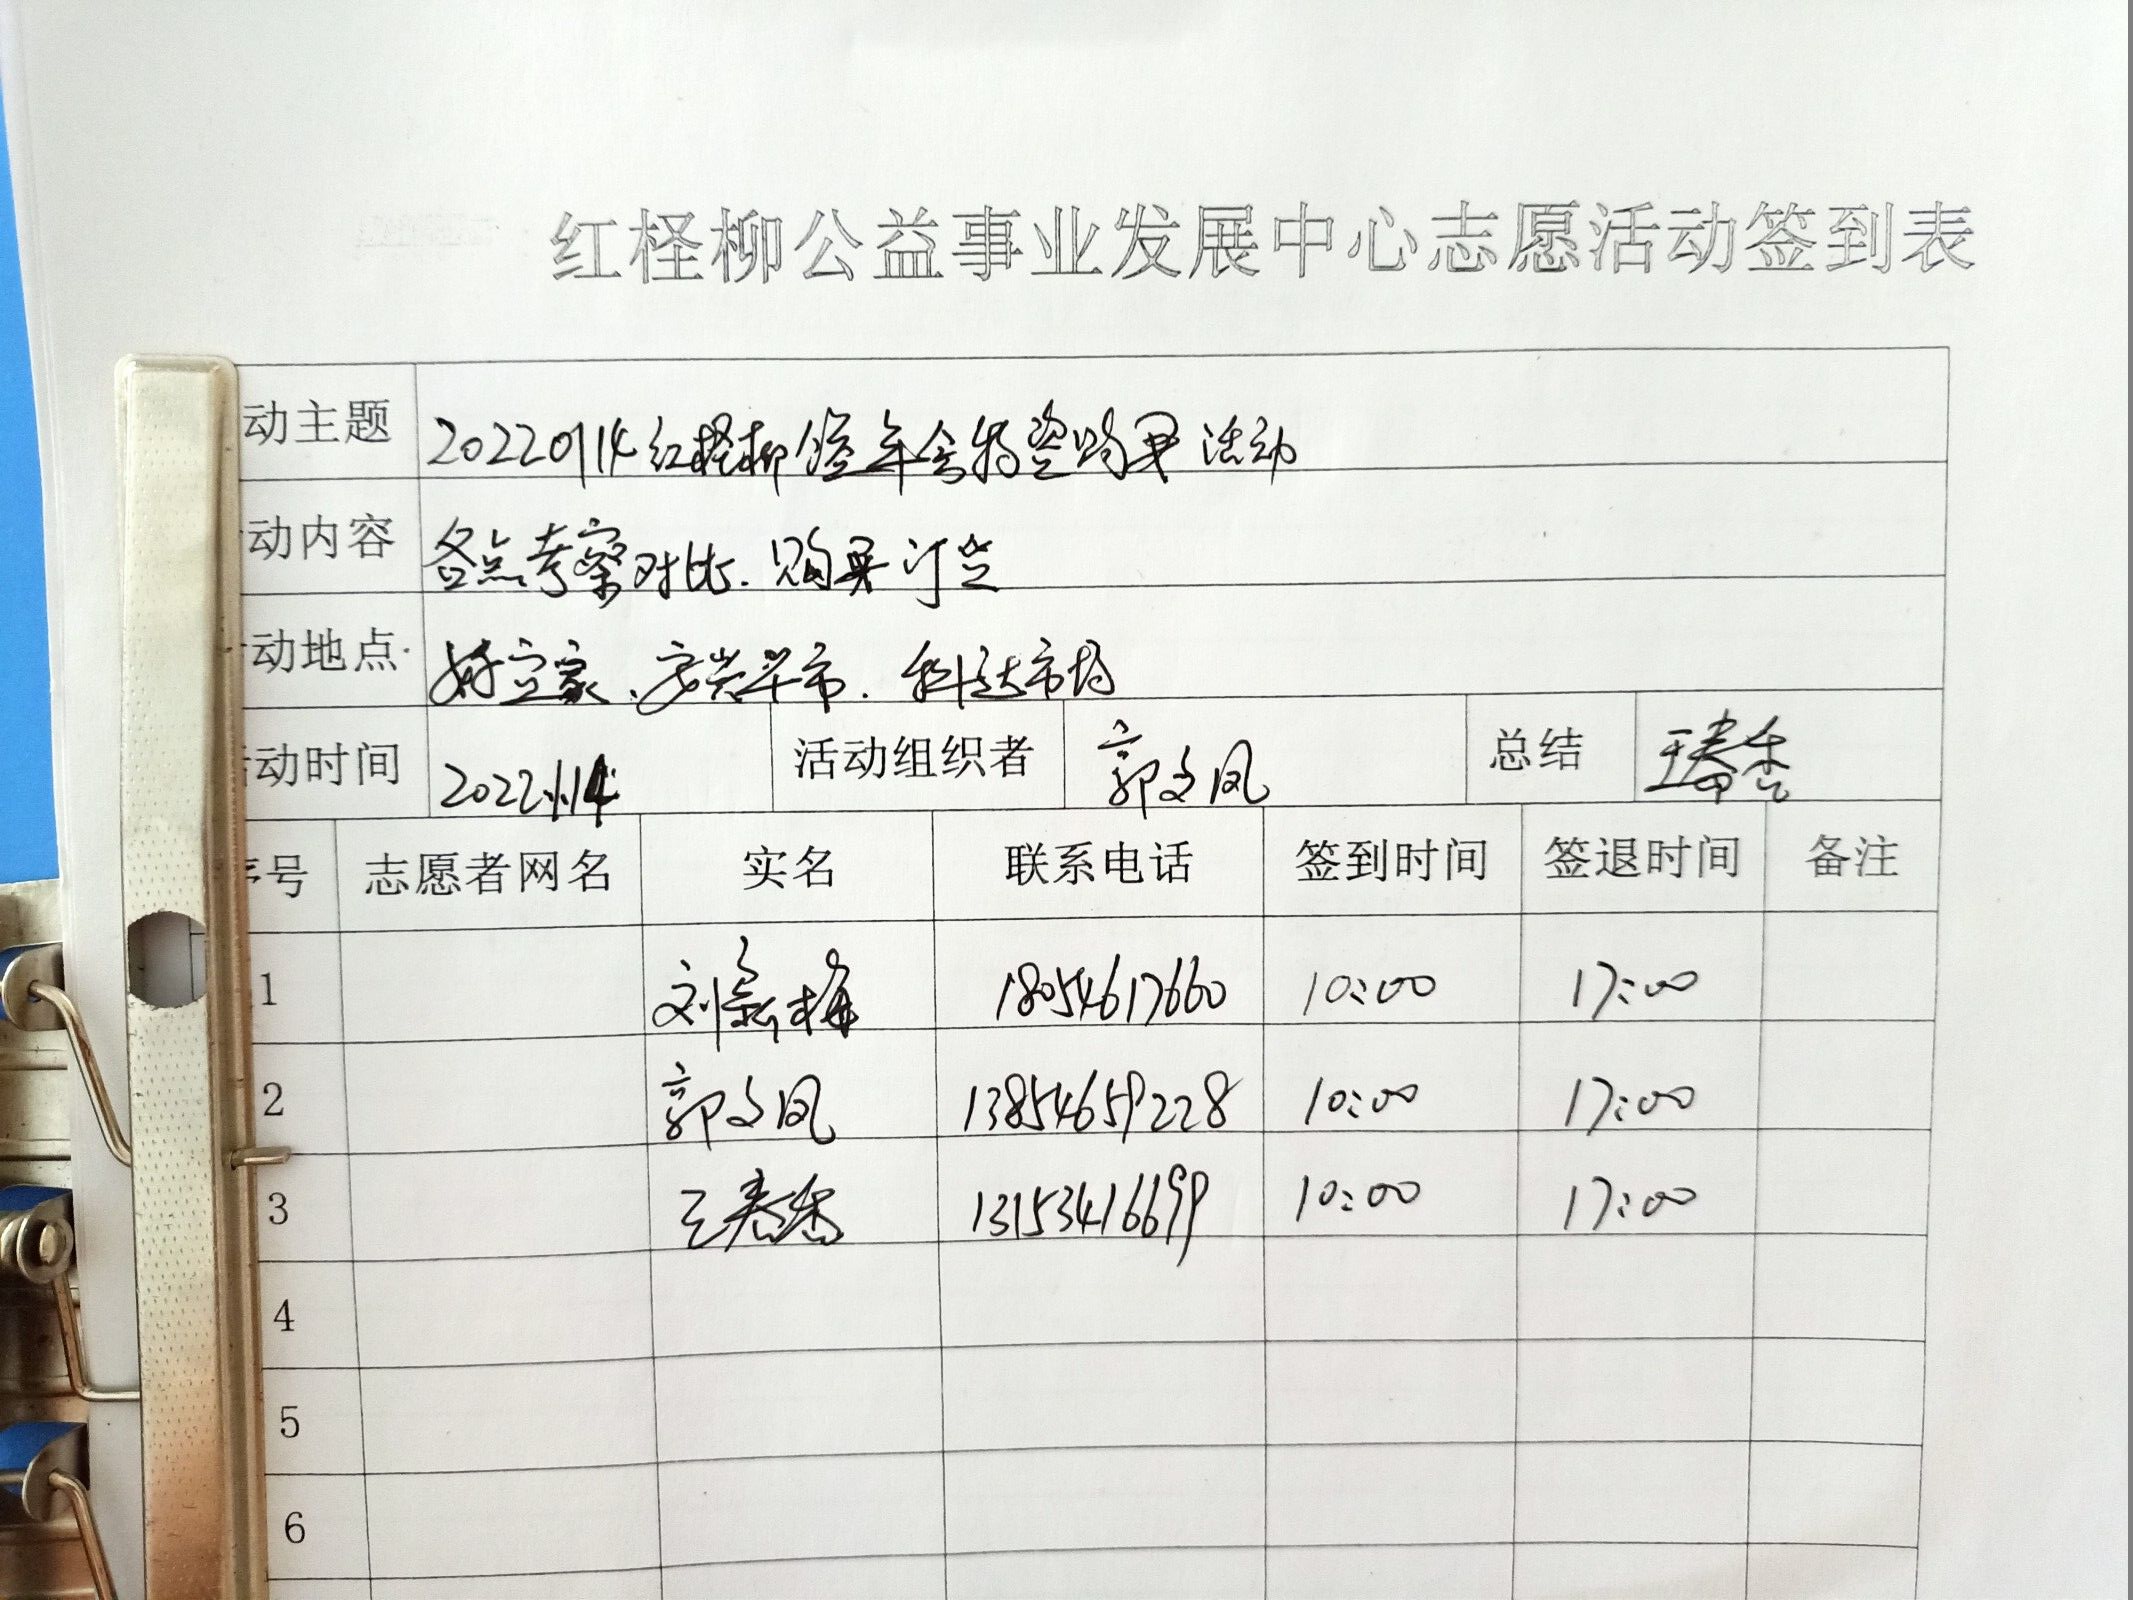 红柽柳公益事业发展中心志愿活动签到表
动主题 20220114红柽柳 年会物资购买活动
动内容 各点考察对比.购买订货
动地点 好宜家、 市.科达市场
动时间 2022.1.14 活动组织者 郭文凤 总结 王春香
序号 志愿者网名 实名 联系电话 签到时间 签退时间 备注
1 刘 梅 18054617660 10:00 17:00
2 郭文凤 13854659228 10:00 17:00
3 王春香 13153416699 10:00 17:00
4
5
6